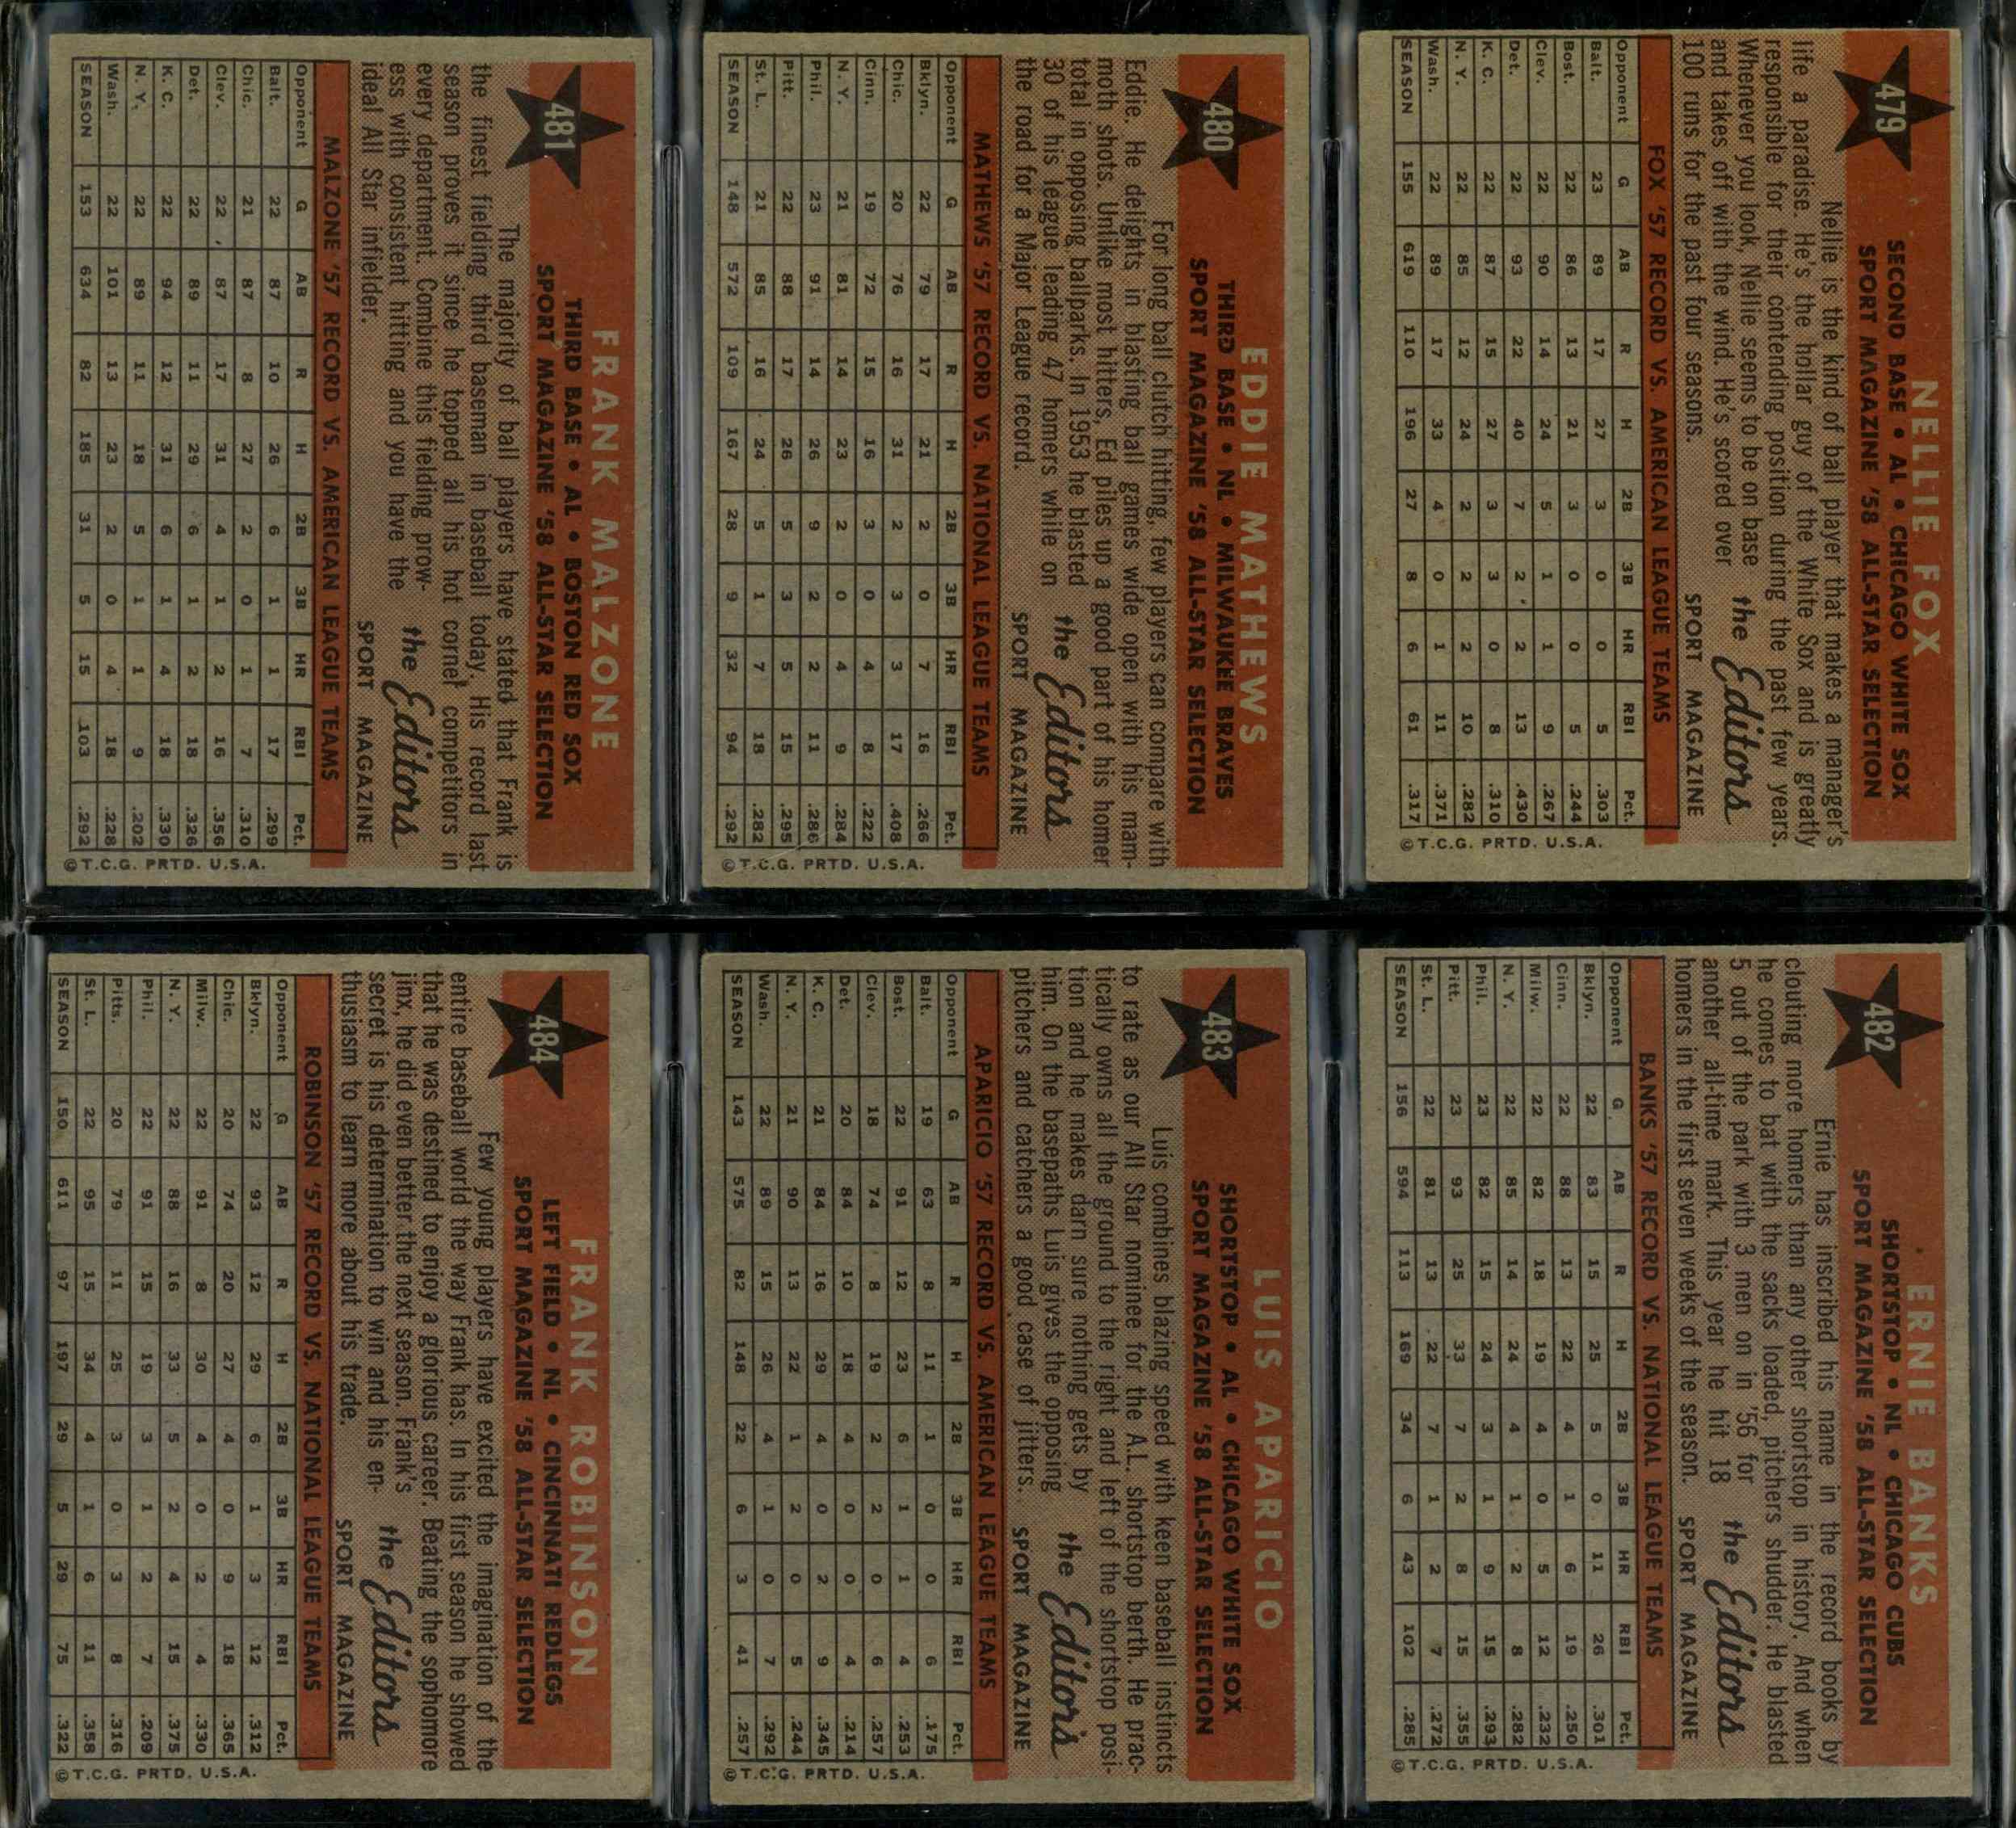 479
NELLIE FOX
SECOND BASE • AL • CHICAGO WHITE SOX
SPORT MAGAZINE '58 ALL-STAR SELECTION
Nellie is the kind of ball player that makes a manager's
life a paradise. He's the hollar guy of the White Sox and is greatly
responsible for their contending position during the past few years.
Whenever you look, Nellie seems to be on base
and takes off with the wind. He's scored over
100 runs for the past four seasons.
the Editors
SPORT MAGAZINE
FOX '57 RECORD VS. AMERICAN LEAGUE TEAMS
Opponent G AB R H 2B 3B HR RBI Pct.
Balt. 23 89 17 27 3 0 0 5 .303
Bost. 22 86 13 21 3 0 0 5 .244
Clev. 22 90 14 24 5 1 1 9 .267
Det. 22 93 22 40 7 2 2 13 .430
K. C. 22 87 15 27 3 3 0 8 .310
N. Y. 22 85 12 24 2 2 2 10 .282
Wash. 22 89 17 33 4 0 1 11 .371
SEASON 155 619 110 196 27 8 6 61 .317
©T.C.G. PRTD. U.S.A.
480
EDDIE MATHEWS
THIRD BASE • NL • MILWAUKEE BRAVES
SPORT MAGAZINE '58 ALL-STAR SELECTION
For long ball clutch hitting, few players can compare with
Eddie. He delights in blasting ball games wide open with his mam-
moth shots. Unlike most hitters, Ed piles up a good part of his homer
total in opposing ballparks. In 1953 he blasted
30 of his league leading 47 homers while on
the road for a Major League record.
the Editors
SPORT MAGAZINE
MATHEWS '57 RECORD VS. NATIONAL LEAGUE TEAMS
Opponent G AB R H 2B 3B HR RBI Pct.
Bklyn. 22 79 17 21 2 0 7 16 .266
Chic. 20 76 16 31 2 3 3 17 .408
Cinn. 19 72 15 16 3 0 4 8 .222
N. Y. 21 81 14 23 2 0 4 9 .284
Phil. 23 91 14 26 9 2 2 11 .286
Pitt. 22 88 17 26 5 3 5 15 .295
St. L. 21 85 16 24 5 1 7 18 .282
SEASON 148 572 109 167 28 9 32 94 .292
©T.C.G. PRTD. U.S.A.
481
FRANK MALZONE
THIRD BASE • AL • BOSTON RED SOX
SPORT MAGAZINE '58 ALL-STAR SELECTION
The majority of ball players have stated that Frank is
the finest fielding third baseman in baseball today. His record last
season proves it since he topped all his hot corner competitors in
every department. Combine this fielding prow-
ess with consistent hitting and you have the
ideal All Star infielder.
the Editors
SPORT MAGAZINE
MALZONE '57 RECORD VS. AMERICAN LEAGUE TEAMS
Opponent G AB R H 2B 3B HR RBI Pct.
Balt. 22 87 10 26 6 1 1 17 .299
Chic. 21 87 8 27 2 0 1 7 .310
Clev. 22 87 17 31 4 1 2 16 .356
Det. 22 89 11 29 6 1 2 18 .326
K. C. 22 94 12 31 6 1 4 18 .330
N. Y. 22 89 11 18 5 1 1 9 .202
Wash. 22 101 13 23 2 0 4 18 .228
SEASON 153 634 82 185 31 5 15 103 .292
©T.C.G. PRTD. U.S.A.
482
ERNIE BANKS
SHORTSTOP • NL • CHICAGO CUBS
SPORT MAGAZINE '58 ALL-STAR SELECTION
Ernie has inscribed his name in the record books by
clouting more homers than any other shortstop in history. And when
he comes to bat with the sacks loaded, pitchers shudder. He blasted
5 out of the park with 3 men on in '56 for
another all-time mark. This year he hit 18
homers in the first seven weeks of the season.
the Editors
SPORT MAGAZINE
BANKS '57 RECORD VS. NATIONAL LEAGUE TEAMS
Opponent G AB R H 2B 3B HR RBI Pct.
Bklyn. 22 83 15 25 5 0 11 26 .301
Cinn. 22 88 13 22 4 1 6 19 .250
Milw. 22 82 18 19 4 0 5 12 .232
N. Y. 22 85 14 24 4 1 2 8 .282
Phil. 23 82 15 24 3 1 9 15 .293
Pitt. 23 93 25 33 7 2 8 15 .355
St. L. 22 81 13 22 7 1 2 7 .272
SEASON 156 594 113 169 34 6 43 102 .285
©T.C.G. PRTD. U.S.A.
483
LUIS APARICIO
SHORTSTOP • AL • CHICAGO WHITE SOX
SPORT MAGAZINE '58 ALL-STAR SELECTION
Luis combines blazing speed with keen baseball instincts
to rate as our All Star nominee for the A.L. shortstop berth. He prac-
tically owns all the ground to the right and left of the shortstop posi-
tion and he makes darn sure nothing gets by
him. On the basepaths Luis gives the opposing
pitchers and catchers a good case of jitters.
the Editors
SPORT MAGAZINE
APARICIO '57 RECORD VS. AMERICAN LEAGUE TEAMS
Opponent G AB R H 2B 3B HR RBI Pct.
Balt. 19 63 8 11 1 0 0 6 .175
Bost. 22 91 12 23 6 1 1 4 .253
Clev. 18 74 8 19 2 2 0 6 .257
Det. 20 84 10 18 4 0 0 4 .214
K. C. 21 84 16 29 4 0 2 9 .345
N. Y. 21 90 13 22 1 2 0 5 .244
Wash. 22 89 15 26 4 1 0 7 .292
SEASON 143 575 82 148 22 6 3 41 .257
©T.C.G. PRTD. U.S.A.
484
FRANK ROBINSON
LEFT FIELD • NL • CINCINNATI REDLEGS
SPORT MAGAZINE '58 ALL-STAR SELECTION
Few young players have excited the imagination of the
entire baseball world the way Frank has. In his first season he showed
that he was destined to enjoy a glorious career. Beating the sophomore
jinx, he did even better the next season. Frank's
secret is his determination to win and his en-
thusiasm to learn more about his trade.
the Editors
SPORT MAGAZINE
ROBINSON '57 RECORD VS. NATIONAL LEAGUE TEAMS
Opponent G AB R H 2B 3B HR RBI Pct.
Bklyn. 22 93 12 29 6 1 3 12 .312
Chic. 20 74 20 27 4 0 9 18 .365
Milw. 22 91 8 30 4 0 2 4 .330
N. Y. 22 88 16 33 5 2 4 15 .375
Phil. 22 91 15 19 3 1 2 7 .209
Pitts. 20 79 11 25 3 0 3 8 .316
St. L. 22 95 15 34 4 1 6 11 .358
SEASON 150 611 97 197 29 5 29 75 .322
©T.C.G. PRTD. U.S.A.